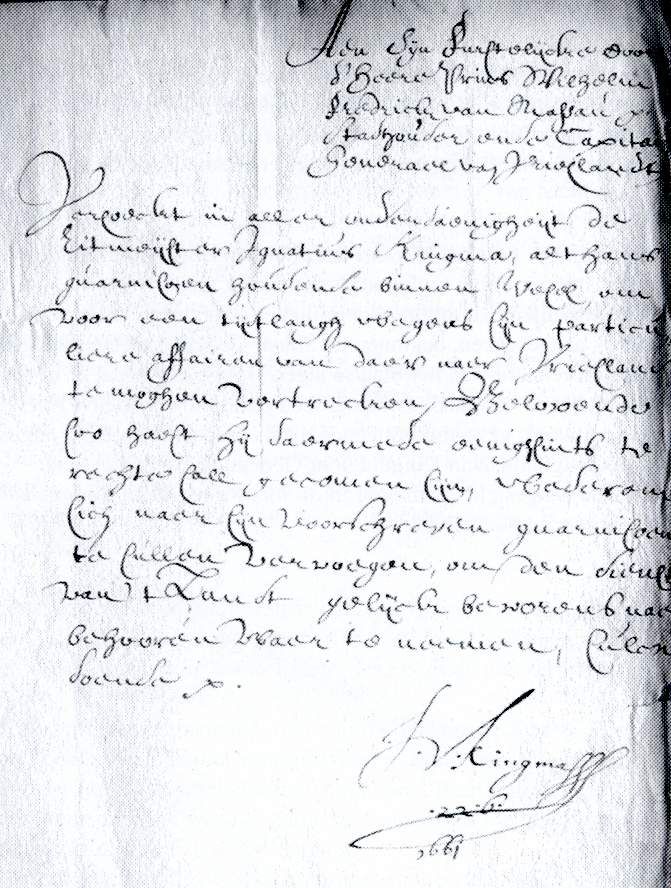 Aen Syn Furstelycke Doo
d'Heere Prins Wilhelm
Fredrick van Nassau
Stadhouder ende Capita
Generael van Frieslandt
Versoeckt in aller onderdaenigheyt de
Ritmeyster Ignatius Kingma, althans
guarnisoen houdende binnen Wesel, om
voor een tijtlangh wegens syn particu
liere affairen van daer naer Vrieslant
te moghen vertrecken, Ghelovende
soo haest hij daermede eenighsints te
rechte sall gecomen syn, wederom
sich naer syn voorschreven guarnisoen
te sullen vervoegen, om den dienst
van 't Landt gelyck bevorens nae
behooren waer te neemen,
doende
J. V. Kingma
22.6.
1661